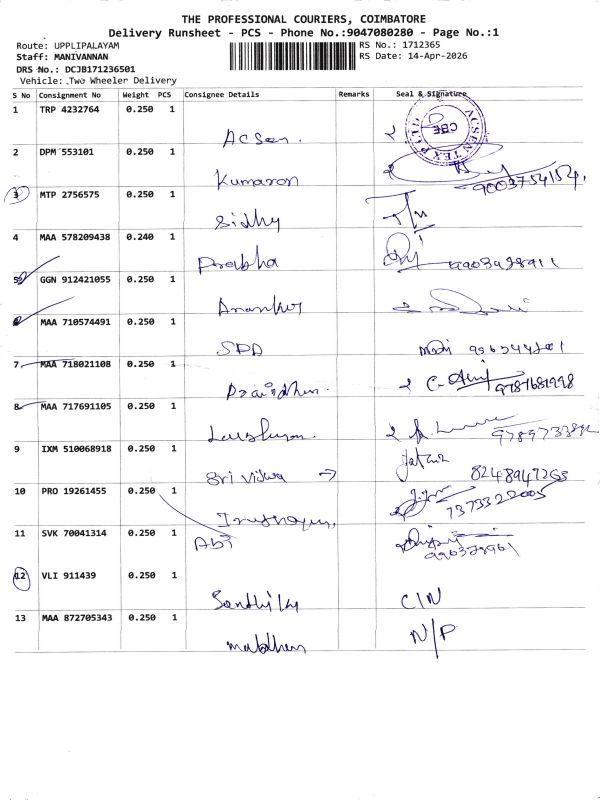 THE PROFESSIONAL COURIERS, COIMBATORE
Delivery Runsheet - PCS - Phone No.:9047080280 - Page No.:1
Route: UPPLIPALAYAM
RS No.: 1712365
Staff: MANIVANNAN
RS Date: 14-Apr-2026
DRS No.: DCJB171236501
Vehicle: Two Wheeler Delivery
S No Consignment No Weight PCS Consignee Details Remarks Seal & Signature
1 TRP 4232764 0.250 1
Acsen.
ACSEN TEX P LTD
CBE
2 DPM 553101 0.250 1
Kumaran 9003754154
3 MTP 2756575 0.250 1
Sidhy
4 MAA 578209438 0.240 1
Prabha
5 GGN 912421055 0.250 1
6 MAA 710574491 0.250 1
SPD
7 MAA 718021108 0.250 1
9787681998
8 MAA 717691105 0.250 1
9 IXM 510068918 0.250 1
Sri Vidwa → 8248947263
10 PRO 19261455 0.250 1
7373322005
11 SVK 70041314 0.250 1
Abi
12 VLI 911439 0.250 1
C/N
13 MAA 872705343 0.250 1
N/P